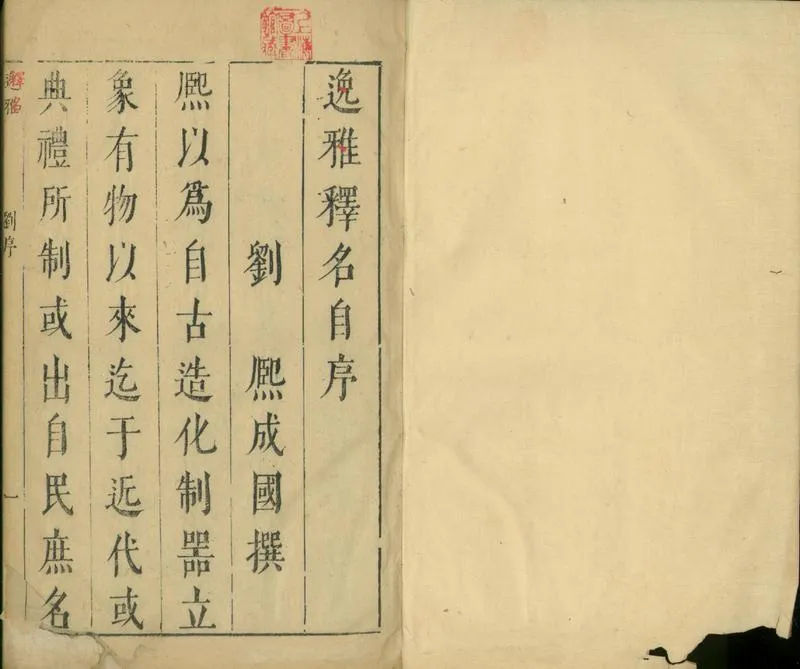 逸雅釋名自序
劉熈成國撰
熈以爲自古造化制器立
象有物以來迄于近代或
典禮所制或出自民庶名
釋名
逸雅
劉序
一